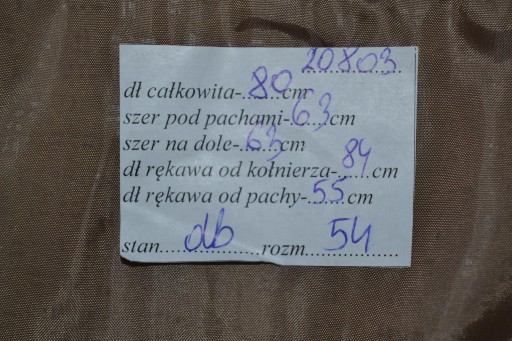 20803
dł całkowita-80cm
szer pod pachami-63cm
szer na dole-63cm
dł rękawa od kołnierza-84cm
dł rękawa od pachy-55cm
stan db rozm 54